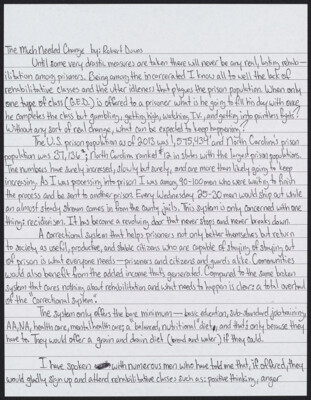 The Much Needed Change by: Robert Dunn
Until some very drastic measures are taken there will never be any real, lasting rehab-
ilitation among prisoners. Being among the incarcerated I know all to well the lack of
rehabilitative classes and the utter idleness that plagues the prison population. When only
one type of class (G.E.D.) is offered to a prisoner what is he going to fill his day with once
he completes the class but gambling, getting high, watching T.V., and getting into pointless fights?
Without any sort of real change, what can be expected to keep happening?
The U.S. prison population as of 2013 was 1,574,434 and North Carolina's prison
population was 37,136; North Carolina ranked #12 in states with the largest prison populations.
The numbers have surely increased, slowly but surely, and are more than likely going to keep
increasing. As I was processing into prison I was among 90-100 men who were waiting to finish
the process and be sent to another prison. Every Wednesday 25-30 men would ship out while
an almost steady stream comes in from the county jails. This system is only concerned with one
thing: recidivism. It has become a revolving door that never stops and never breaks down.
A correctional system that helps prisoners not only better themselves but return
to society as useful, productive, and stable citizens who are capable of staying out
of prison is what everyone needs - prisoners and citizens and guards alike. Communities
would also benefit from the added income that's generated. Compared to the same broken
system that cares nothing about rehabilitation and what needs to happen is clear: a total overhaul
of the "correctional system".
The system only offers the bare minimum - basic education, sub-standard job training,
AA, NA, health care, mental health care, a "balanced, nutritional" diet, and that's only because they
have to. They would offer a grain and drain diet (bread and water) if they could.
I have spoken with numerous men who have told me that, if offered, they
would gladly sign up and attend rehabilitative classes such as: positive thinking, anger